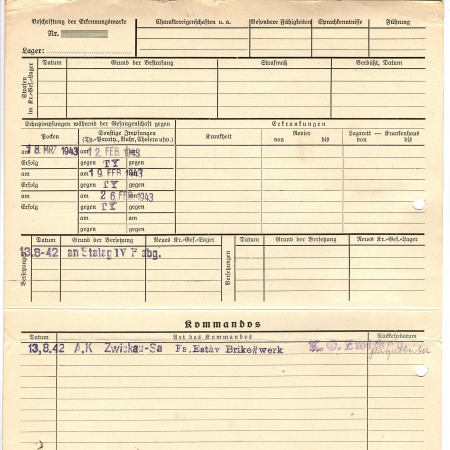 Beschriftung der Erkennungsmarke
Nr.
Lager:
Charaktereigenschaften u. a.
Besondere Fähigkeiten
Sprachkenntnisse
Führung
Strafen im Kr.-Gef.-Lager
Datum
Grund der Bestrafung
Strafmaß
Verbüßt, Datum
Schutzimpfungen während der Gefangenschaft gegen
Erkrankungen
Pocken
Sonstige Impfungen
(Ty.-Paraty., Ruhr, Cholera usw.)
Krankheit
Revier
von bis
Lazarett — Krankenhaus
von bis
am 18. MRZ 1943 am 12. FEB 1943
Erfolg gegen TY gegen
am am 19 FEB 1943
Erfolg gegen TY gegen
am am 26. FEB 1943
Erfolg gegen TY gegen
am am
gegen gegen
Versetzungen
Datum
Grund der Versetzung
Neues Kr.-Gef.-Lager
Versetzungen
Datum
Grund der Versetzung
Neues Kr.-Gef.-Lager
13.8-42 an Stalag IV F abg.
Kommandos
Datum
Art des Kommandos
Rückkehrdatum
13.8.42 A.K Zwickau-Sa Fs. Estàv Brikettwerk